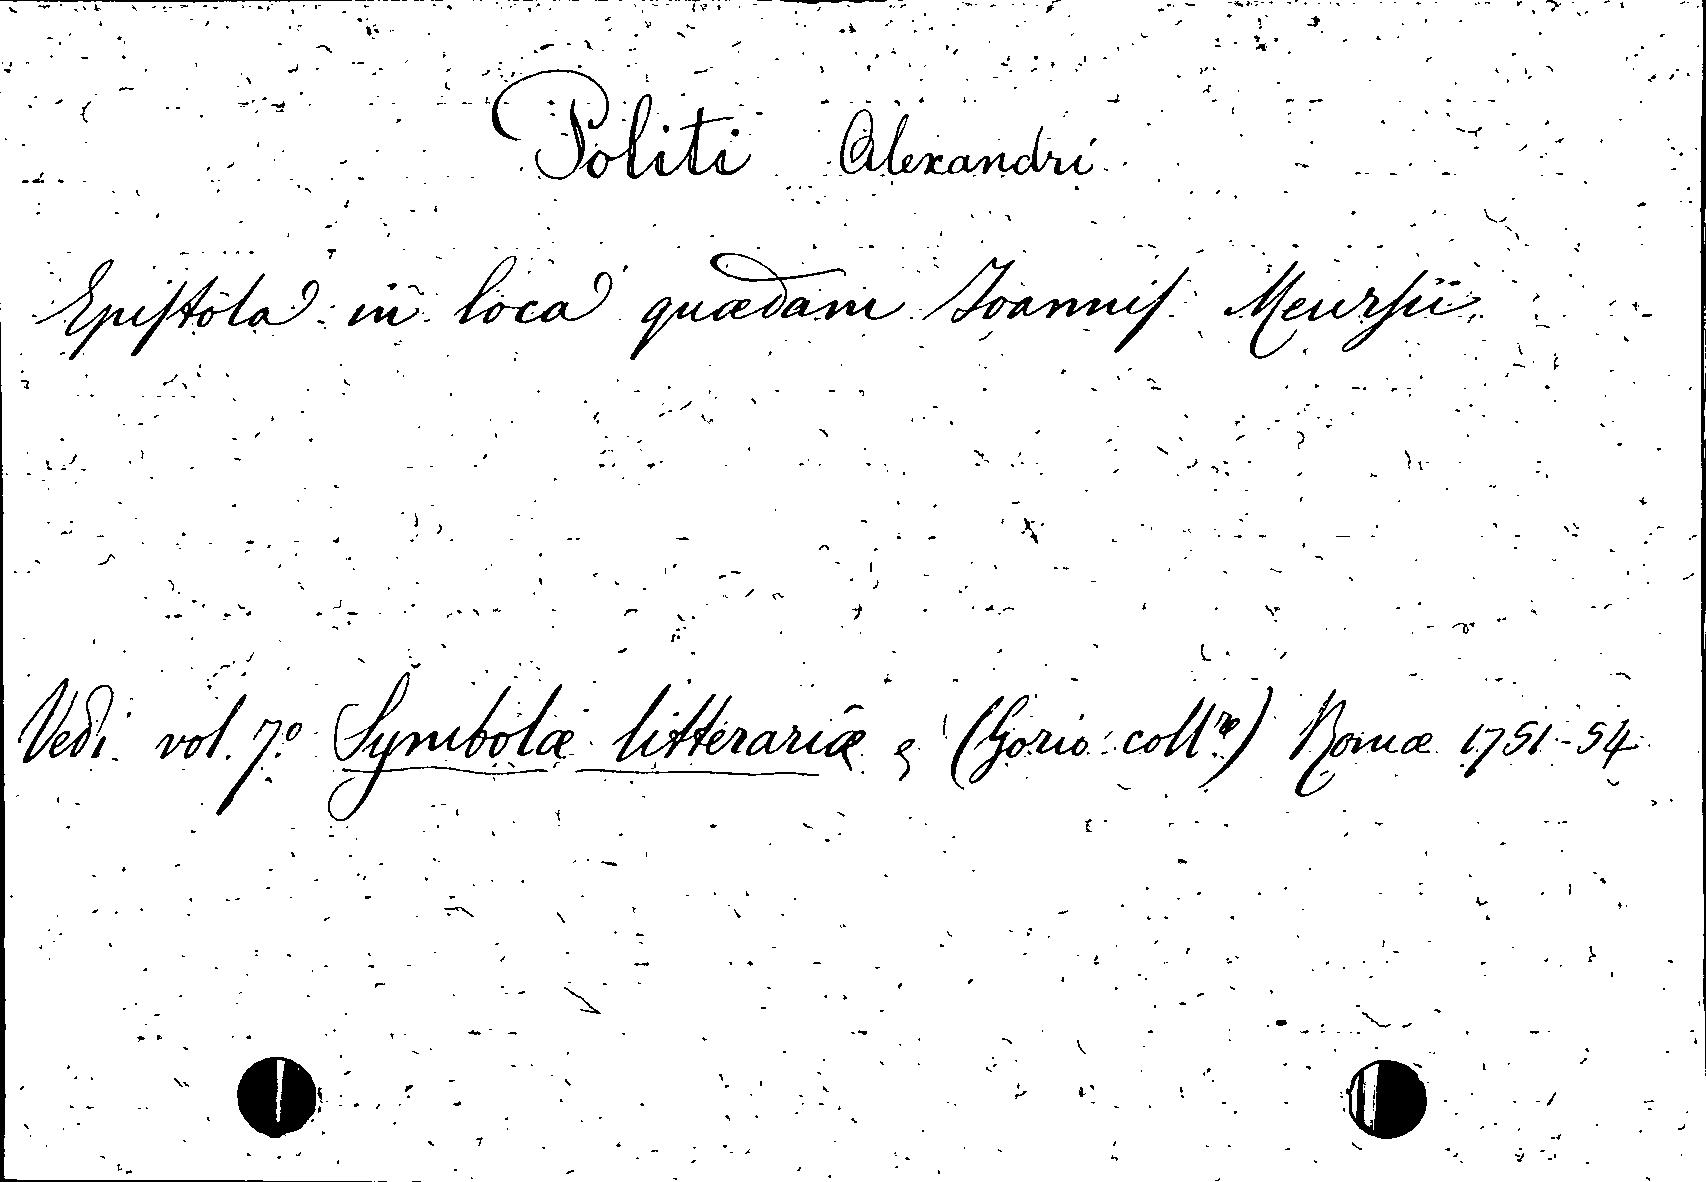 Politi Alexandri
Epistola in loca quædam Joannis Meursii
Vedi vol. 7.º Symbolæ litterariæ (Gorio collre) Romæ 1751-54